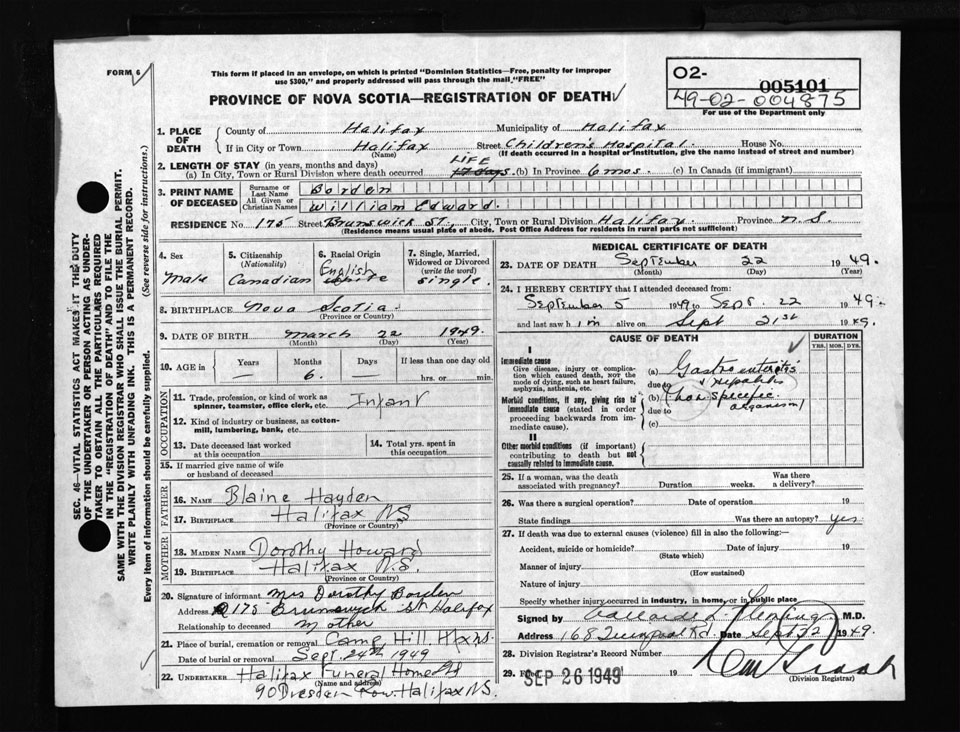 FORM 6
This form if placed in an envelope, on which is printed "Dominion Statistics—Free, penalty for improper
use $300," and properly addressed will pass through the mail "FREE"
PROVINCE OF NOVA SCOTIA—REGISTRATION OF DEATH
02- 005101
49-02-004875
For use of the Department only
SEC. 46—VITAL STATISTICS ACT MAKES IT THE DUTY
OF THE UNDERTAKER OR PERSON ACTING AS UNDER-
TAKER TO OBTAIN ALL THE PARTICULARS REQUIRED
IN THE "REGISTRATION OF DEATH" AND TO FILE THE
SAME WITH THE DIVISION REGISTRAR WHO SHALL ISSUE THE BURIAL PERMIT.
WRITE PLAINLY WITH UNFADING INK. THIS IS A PERMANENT RECORD.
Every item of information should be carefully supplied. (See reverse side for instructions.)
1. PLACE OF DEATH
County of Halifax Municipality of Halifax
If in City or Town Halifax Street Children's Hospital House No.
(Name) (If death occurred in a hospital or institution, give the name instead of street and number)
2. LENGTH OF STAY (in years, months and days)
(a) In City, Town or Rural Division where death occurred LIFE 17 days (b) In Province 6 mos. (c) In Canada (if immigrant)
3. PRINT NAME OF DECEASED
Surname or Last Name Borden
All Given or Christian Names William Edward.
RESIDENCE No. 175 Street Brunswick St., City, Town or Rural Division Halifax Province N.S.
(Residence means usual place of abode. Post Office Address for residents in rural parts not sufficient)
4. Sex Male
5. Citizenship (Nationality) Canadian
6. Racial Origin English white
7. Single, Married, Widowed or Divorced (write the word) Single
8. BIRTHPLACE Nova Scotia
(Province or Country)
9. DATE OF BIRTH March 22 1949.
(Month) (Day) (Year)
10. AGE in Years — Months 6. Days — If less than one day old hrs. or min.
OCCUPATION
11. Trade, profession, or kind of work as spinner, teamster, office clerk, etc. Infant
12. Kind of industry or business, as cotton-mill, lumbering, bank, etc.
13. Date deceased last worked at this occupation
14. Total yrs. spent in this occupation
15. If married give name of wife or husband of deceased
FATHER
16. NAME Blaine Hayden
17. BIRTHPLACE Halifax NS
(Province or Country)
MOTHER
18. MAIDEN NAME Dorothy Howard
19. BIRTHPLACE Halifax N.S.
(Province or Country)
20. Signature of informant Mrs Dorothy Borden
Address 175 Brunswick St Halifax
Relationship to deceased Mother
21. Place of burial, cremation or removal Camp Hill Hfx NS.
Date of burial or removal Sept. 24th 1949
22. UNDERTAKER Halifax Funeral Home
(Name and address)
90 Dresden Row. Halifax NS.
MEDICAL CERTIFICATE OF DEATH
23. DATE OF DEATH September 22 1949.
(Month) (Day) (Year)
24. I HEREBY CERTIFY that I attended deceased from:
September 5 1949 to Sept. 22 1949.
and last saw him alive on Sept 21st 1949.
CAUSE OF DEATH
DURATION
YRS. MOS. DYS.
I
Immediate cause
Give disease, injury or complication which caused death, not the mode of dying, such as heart failure, asphyxia, asthenia, etc.
(a) Gastroenteritis
due to & hepatitis
Morbid conditions, if any, giving rise to immediate cause (stated in order proceeding backwards from immediate cause).
(b) (non specific
due to organism)
(c)
II
Other morbid conditions (if important) contributing to death but not causally related to immediate cause.
25. If a woman, was the death associated with pregnancy? Duration weeks. Was there a delivery?
26. Was there a surgical operation? Date of operation 19
State findings Was there an autopsy? yes
27. If death was due to external causes (violence) fill in also the following:—
Accident, suicide or homicide? Date of injury 19
(State which)
Manner of injury
(How sustained)
Nature of injury
Specify whether injury occurred in industry, in home, or in public place
Signed by M.D.
Address 168 Quinpool Rd. Date Sept 22 1949.
28. Division Registrar's Record Number
29. Filed SEP 26 1949 19
(Division Registrar)